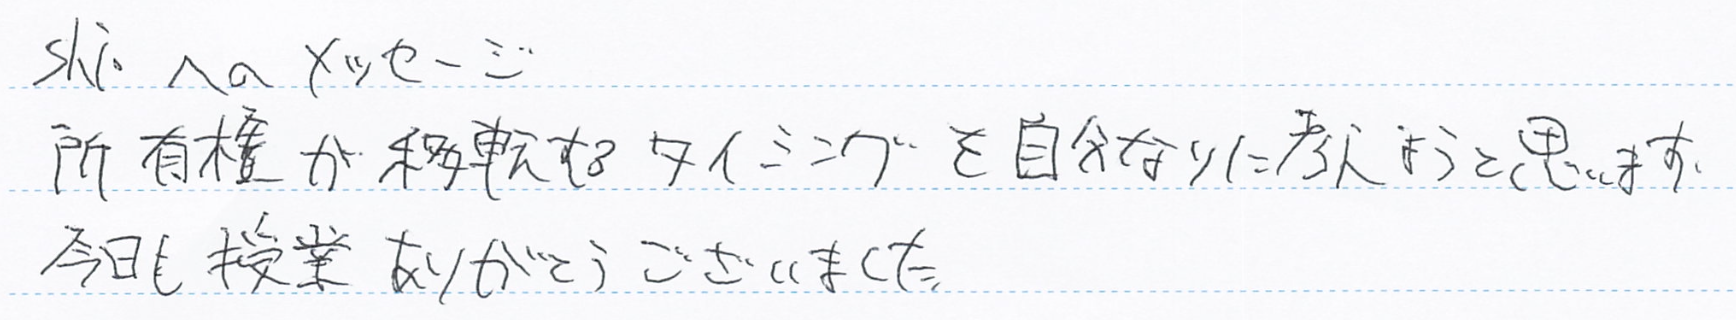 shiへのメッセージ
所有権が移転するタイミングを自分なりに考えようと思います.
今日も授業ありがとうございました